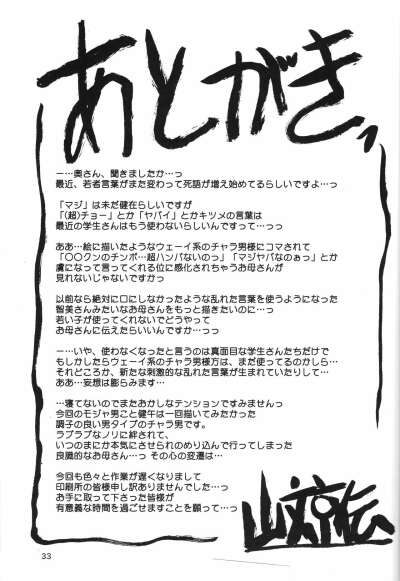 あとがきっ
ー…奥さん、聞きましたか…っ
最近、若者言葉がまた変わって死語が増え始めてるらしいですよ…っ
「マジ」は未だ健在らしいですが
「(超)チョー」とか「ヤバイ」とかキツメの言葉は
最近の学生さんはもう使わないらしいんですって…っっ
ああ…絵に描いたようなウェーイ系のチャラ男様にコマされて
「〇〇クンのチンポ…超ハンパないのっ」「マジヤバなのぉっ」とか
虜になって言ってくれる位に感化されちゃうお母さんが
見れないじゃないですかっ
以前なら絶対に口にしなかったような乱れた言葉を使うようになった
智美さんみたいなお母さんをもっと描きたいのに…っ
若い子が使ってくれないでどうやって
お母さんに伝えたらいいんですか…っっ
ー…いや、使わなくなったと言うのは真面目な学生さんたちだけで
もしかしたらウェーイ系のチャラ男様方は、まだ使ってるのかしら…
それどころか、新たな刺激的な乱れた言葉が生まれていたりして…
ああ…妄想は膨らみます…
…寝てないのでまたおかしなテンションですみませんっ
今回のモジャ男こと健午は一回描いてみたかった
調子の良い男タイプのチャラ男です。
ラブラブなノリに絆されて、
いつのまにか本気にさせられのめり込んで行ってしまった
良識的なお母さん…っ その心の変遷は…っ
今回も色々と作業が遅くなりまして
印刷所の皆様申し訳ありませんでした…っ
お手に取って下さった皆様が
有意義な時間を過ごせますことを願って…っ
山文京伝
33